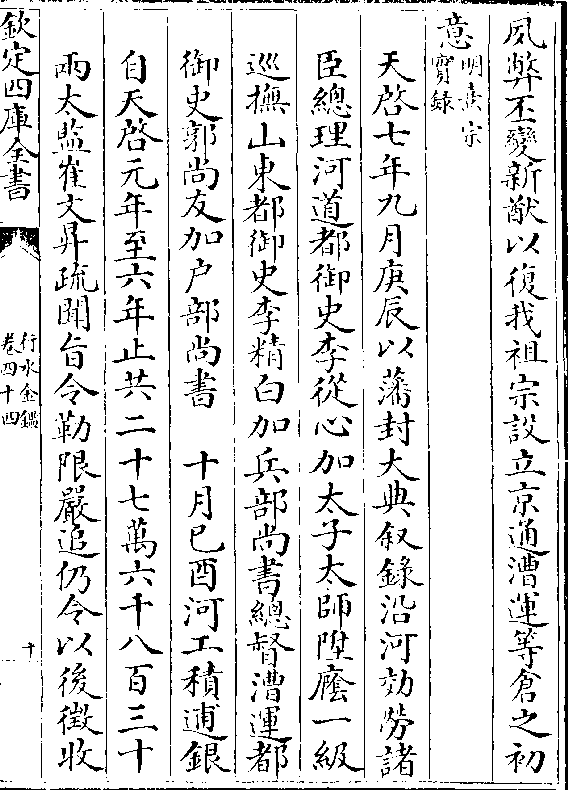 夙弊丕變新猷以復我祖宗設立京通漕運等倉之初
意明熹宗
實録
天啓七年九月庚辰以藩封大典叙錄沿河効勞諸
臣總理河道都御史李從心加太子太師陞廕一級
巡撫山東都御史李精白加兵部尚書總督漕運都
御史郭尚友加户部尚書 十月己酉河工積逋銀
自天啓元年至六年止共二十七萬六千八百三十
兩太監崔文昇疏聞旨令勒限嚴追仍令以後徵收
欽定四庫全書
行水金鑑
卷四十四
十